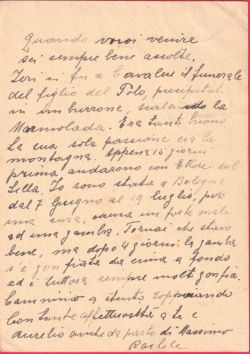 Quando vuoi venire
sei sempre bene accolte.
Ieri si fu a Cavalese il funerale
del figlio del Polo, precipitat
in un burrone, scalando la
Marmolada. Era tanto buono
La sua sola passione era la
montagna. Appena 15 giorni
prima andarono con Ettore sul
Sella. Io sono stata a Bologna
dal 7 Giugno al 19 luglio, per
una cura, causa un forte male
ad una gamba. Tornai che stavo
bene, ma dopo 4 giorni la gamba
s'è gonfiata da cima a fondo
ed è tuttora sempre molt gonfia.
Cammino a stento zoppicando
Con tante affettuosità a Te e
Aurelio anche da parte di Massimo